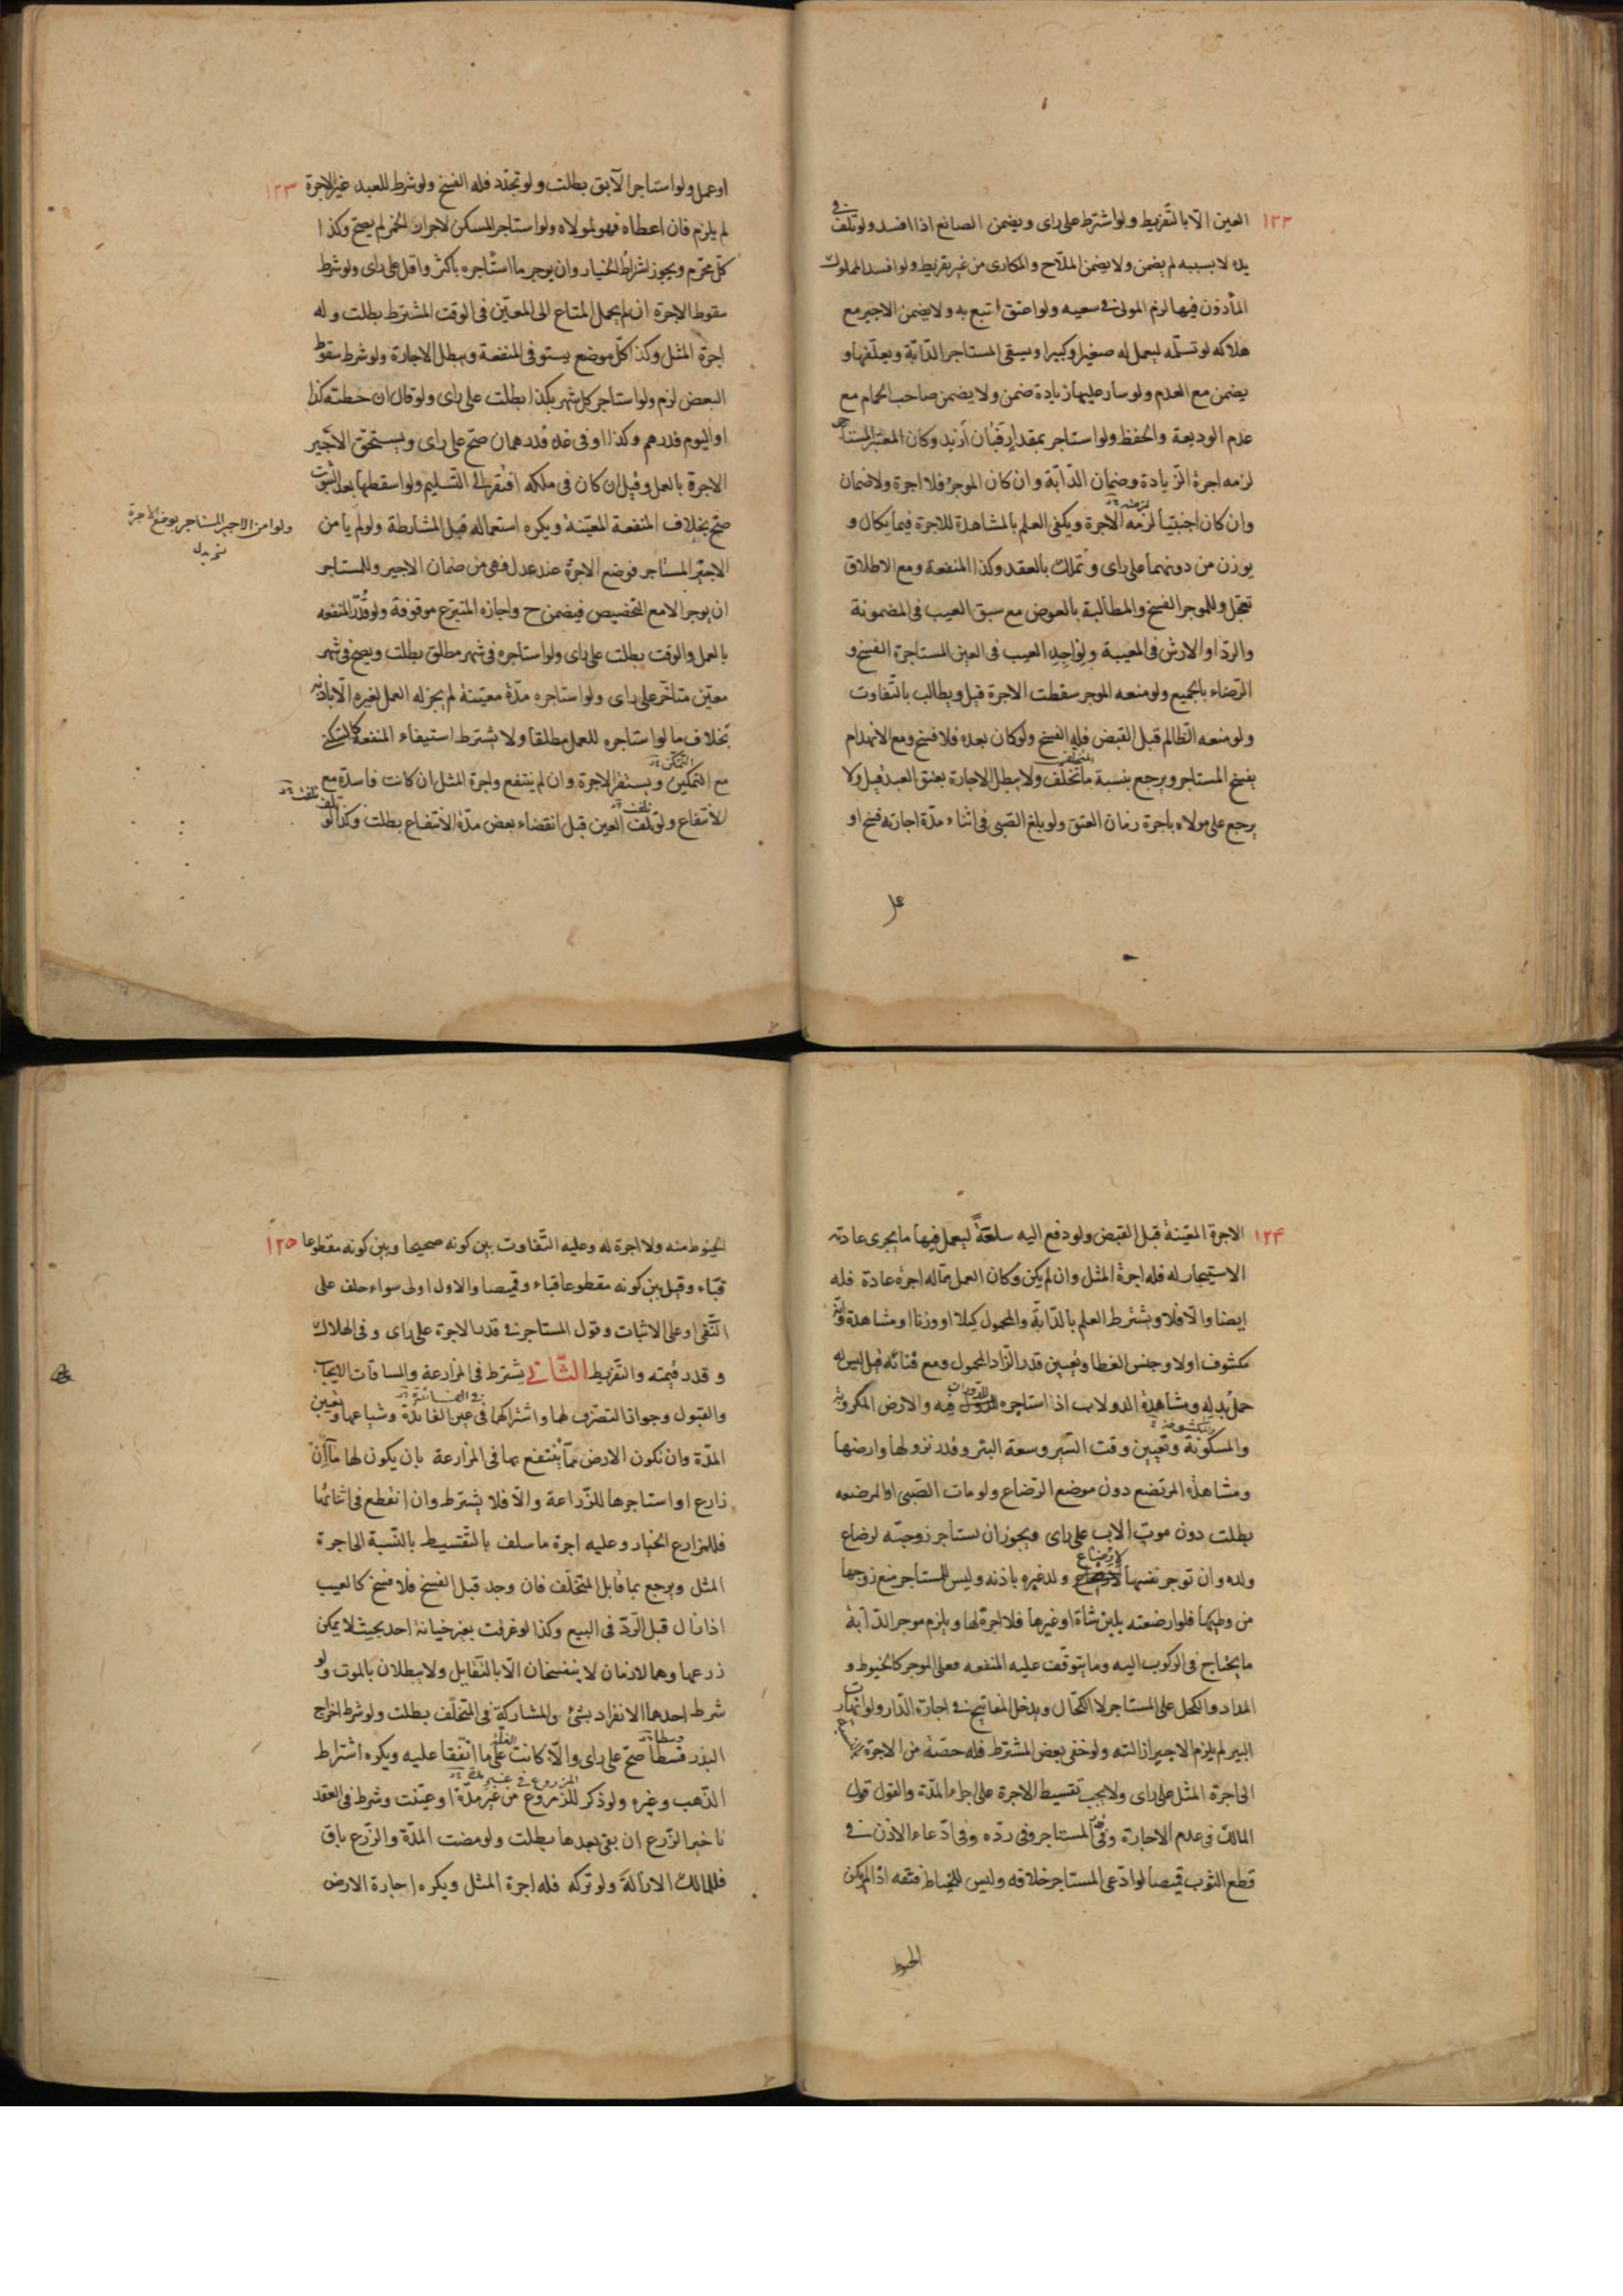 ١٢٢
العين الّا بالتّفريط ولو اشترط على راى ويضمن الصانع اذا افسد ولو تلف فى
يده لا بسببه لم يضمن ولا يضمن الملاّح والمكارى من غير تفريط ولو افسد المملوك
المأذون فيها لزم المولى فى سعيه ولو اعتق اتبع به ولا يضمن الاجير مع
هلاكه لو تسلّمه ليعمل له صغيرا وكبيرا ويسقى المستاجر الدّابّة ويعلّفها و
يضمن مع العدم ولو سار عليها زيادة ضمن ولا يضمن صاحب الحمام مع
عدم الوديعة والحفظ ولو استاجر بمقدار فبان أزيد وكان المعتبر المستاجر
لزمه اجرة الزّيادة وضمان الدّابّة وان كان الموجر فلا اجرة ولا ضمان
وان كان اجنبيّا لزمه الاجرة ويكفى العلم بالمشاهدة للاجرة فيما يكال و
يوزن من دونهما على راى وتملك بالعقد وكذا المنفعة ومع الاطلاق
تعجّل وللموجر الفسخ والمطالبة بالعوض مع سبق العيب فى المضمونة
والردّ او الارش فى المعيبة ولواجد العيب فى العين المستأجرة الفسخ و
الرّضاء بالجميع ولو منعه الموجر سقطت الاجرة قيل ويطالب بالتّفاوت
ولو منعه الظّالم قبل القبض فله الفسخ ولو كان بعده فلا فسخ ومع الانهدام
يفسخ المستاجر ويرجع بنسبة ما تخلّف ولا يبطل الاجارة بعتق العبد قيل ولا
يرجع على مولاه باجرة زمان العتق ولو بلغ الصّبى فى اثناء مدّة اجارته فسخ او
١٢٣
او عمل ولو استاجر الآبق بطلت ولو تجدّد فله الفسخ ولو شرط للعبد غير الاجرة
لم يلزم فان اعطاه فهو لمولاه ولو استاجر المسكن لاحراز الخمر لم يصحّ وكذا
كلّ محرّم ويجوز اشراط الخيار وان يوجر ما استاجره باكثر واقل على راى ولو شرط
سقوط الاجرة ان لم يحمل المتاع الى المعيّن فى الوقت المشترط بطلت وله
اجرة المثل وكذا كلّ موضع يستوفى المنفعة ويبطل الاجارة ولو شرط سقوط
البعض لزم ولو استاجر كل شهر بكذا بطلت على راى ولو قال ان خطته كذا
او اليوم فدرهم وكذا او فى غد فدرهمان صحّ على راى ويستحقّ الاجير
الاجرة بالعمل وقيل ان كان فى ملكه افتقر الى التّسليم ولو اسقطها بعد الثبوت
صحّ بخلاف المنفعة المعيّنة ويكره استعماله قبل المشارطة ولو لم يأمن
الاجير المستاجر فوضع الاجرة عند عدل فهى من ضمان الاجير وللمستاجر
ان يوجر الا مع التخصيص فيضمن ح واجازه المتبرّع موقوفة ولو قدّر المنفعه
بالعمل والوقت بطلت على راى ولو استأجره فى شهر مطلق بطلت ويصح فى شهر
معيّن متاخّر على راى ولو استاجره مدّة معيّنة لم يجز له العمل لغيره الّا باذنه
بخلاف ما لو استاجره للعمل مطلقا ولا يشترط استيفاء المنفعة
مع التمكين ويستقر الاجرة وان لم ينتفع واجرة المثل ان كانت فاسدة مع
الانتفاع ولو تلف العين قبل انقضاء بعض مدّة الانتفاع بطلت وكذا لو
١٢٤
الاجرة المعيّنة قبل القبض ولو دفع اليه سلعةً ليعمل فيها ما يجرى عادته
الاستيجار له فله اجرة المثل وان لم يكن وكان العمل ممّا له اجرة عادة فله
ايضا والّا فلا ويشترط العلم بالدّابّة والمحمول كيلا او وزنا او مشاهدة وانّه
مكشوف اولا وجنس الغطا وتعيين قدر الزّاد المحمول ومع فنائه قيل ليس له
حمل بدله ومشاهدة الدولاب اذا استاجره فيه والارض المكروبة
والمسكونة وتعيين وقت السّير وسعة البئر وقدر نزولها وارضها
ومشاهدة المرتضع دون موضع الرّضاع ولو مات الصّبى او المرضعه
بطلت دون موت الاب على راى ويجوز ان يستاجر زوجته لرضاع
ولده وان توجر نفسها لارضاع ولد غيره باذنه وليس للمستاجر منع زوجها
من وطيها فلو ارضعته بلبن شاة او غيرها فلا اجرة لها ويلزم موجر الدّابة
ما يحتاج فى الركوب اليه وما يتوقف عليه المنفعه فعلى الموجر كالخيوط و
المداد والكحل على المستاجر لا الكحّال ويدخل المفاتيح فى اجارة الدّار ولو انهار
البير لم يلزم الاجير ازالته ولو خفى بعض المشترط فله حصّة من الاجرة
الى اجرة المثل على راى ولا يجب تقسيط الاجرة على اجزاء المدّة والقول قول
المالك فى عدم الاجارة وقول المستاجر وفى ردّه وفى ادّعاء الاذن فى
قطع الثوب قميصا لو ادّعى المستاجر خلافه وليس للخياط فتقه اذا لم يكن
الخيوط
١٢٥
الخيوط منه ولا اجرة له وعليه التّفاوت بين كونه صحيحا وبين كونه مقطوعا
قباء وقيل بين كونه مقطوعا قباء وقميصا والاول اولى سواء حلف على
النّفى او على الاثبات وقول المستاجر فى قدر الاجرة على راى وفى الهلاك
وقدر قيمته والتّفريط الثّانى يشترط فى المزارعة والمساقات الايجاب
والقبول وجواز التصرّف لهما واشتراكهما فى عين الفائدة وشياعهما وتعيين
المدّة وان تكون الارض ممّا ينتفع بها فى المزارعة بان يكون لها ماء ان
زارع او استاجرها للزّراعة والّا فلا يشترط وان انقطع فى اثنائها
فللمزارع الخيار وعليه اجرة ما سلف بالتّقسيط بالنّسبة الى اجرة
المثل ويرجع بما قابل المتخلّف فان وجد قبل الفسخ فلا فسخ كالعيب
اذا زال قبل الرّدّ فى البيع وكذا لو غرقت بغير خيانة احد بحيث لا يمكن
زرعها وهما لازمان لا ينفسخان الّا بالتّقايل ولا يبطلان بالموت ولو
شرط احدهما الانفراد بشئ والمشاركة فى المتخلّف بطلت ولو شرط اخراج
البذر قسطا صحّ على راى والّا كانت على ما اتّفقا عليه ويكره اشتراط
الذّهب وغيره ولو ذكر للمزروع من غير مدّة او عيّنت وشرط فى العقد
تاخير الزّرع ان بقى بعدها بطلت ولو مضت المدّة والزّرع باق
فللمالك الازالة ولو تركه فله اجرة المثل ويكره اجارة الارض